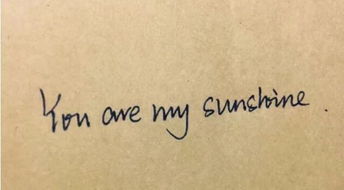 You are my sunshine.